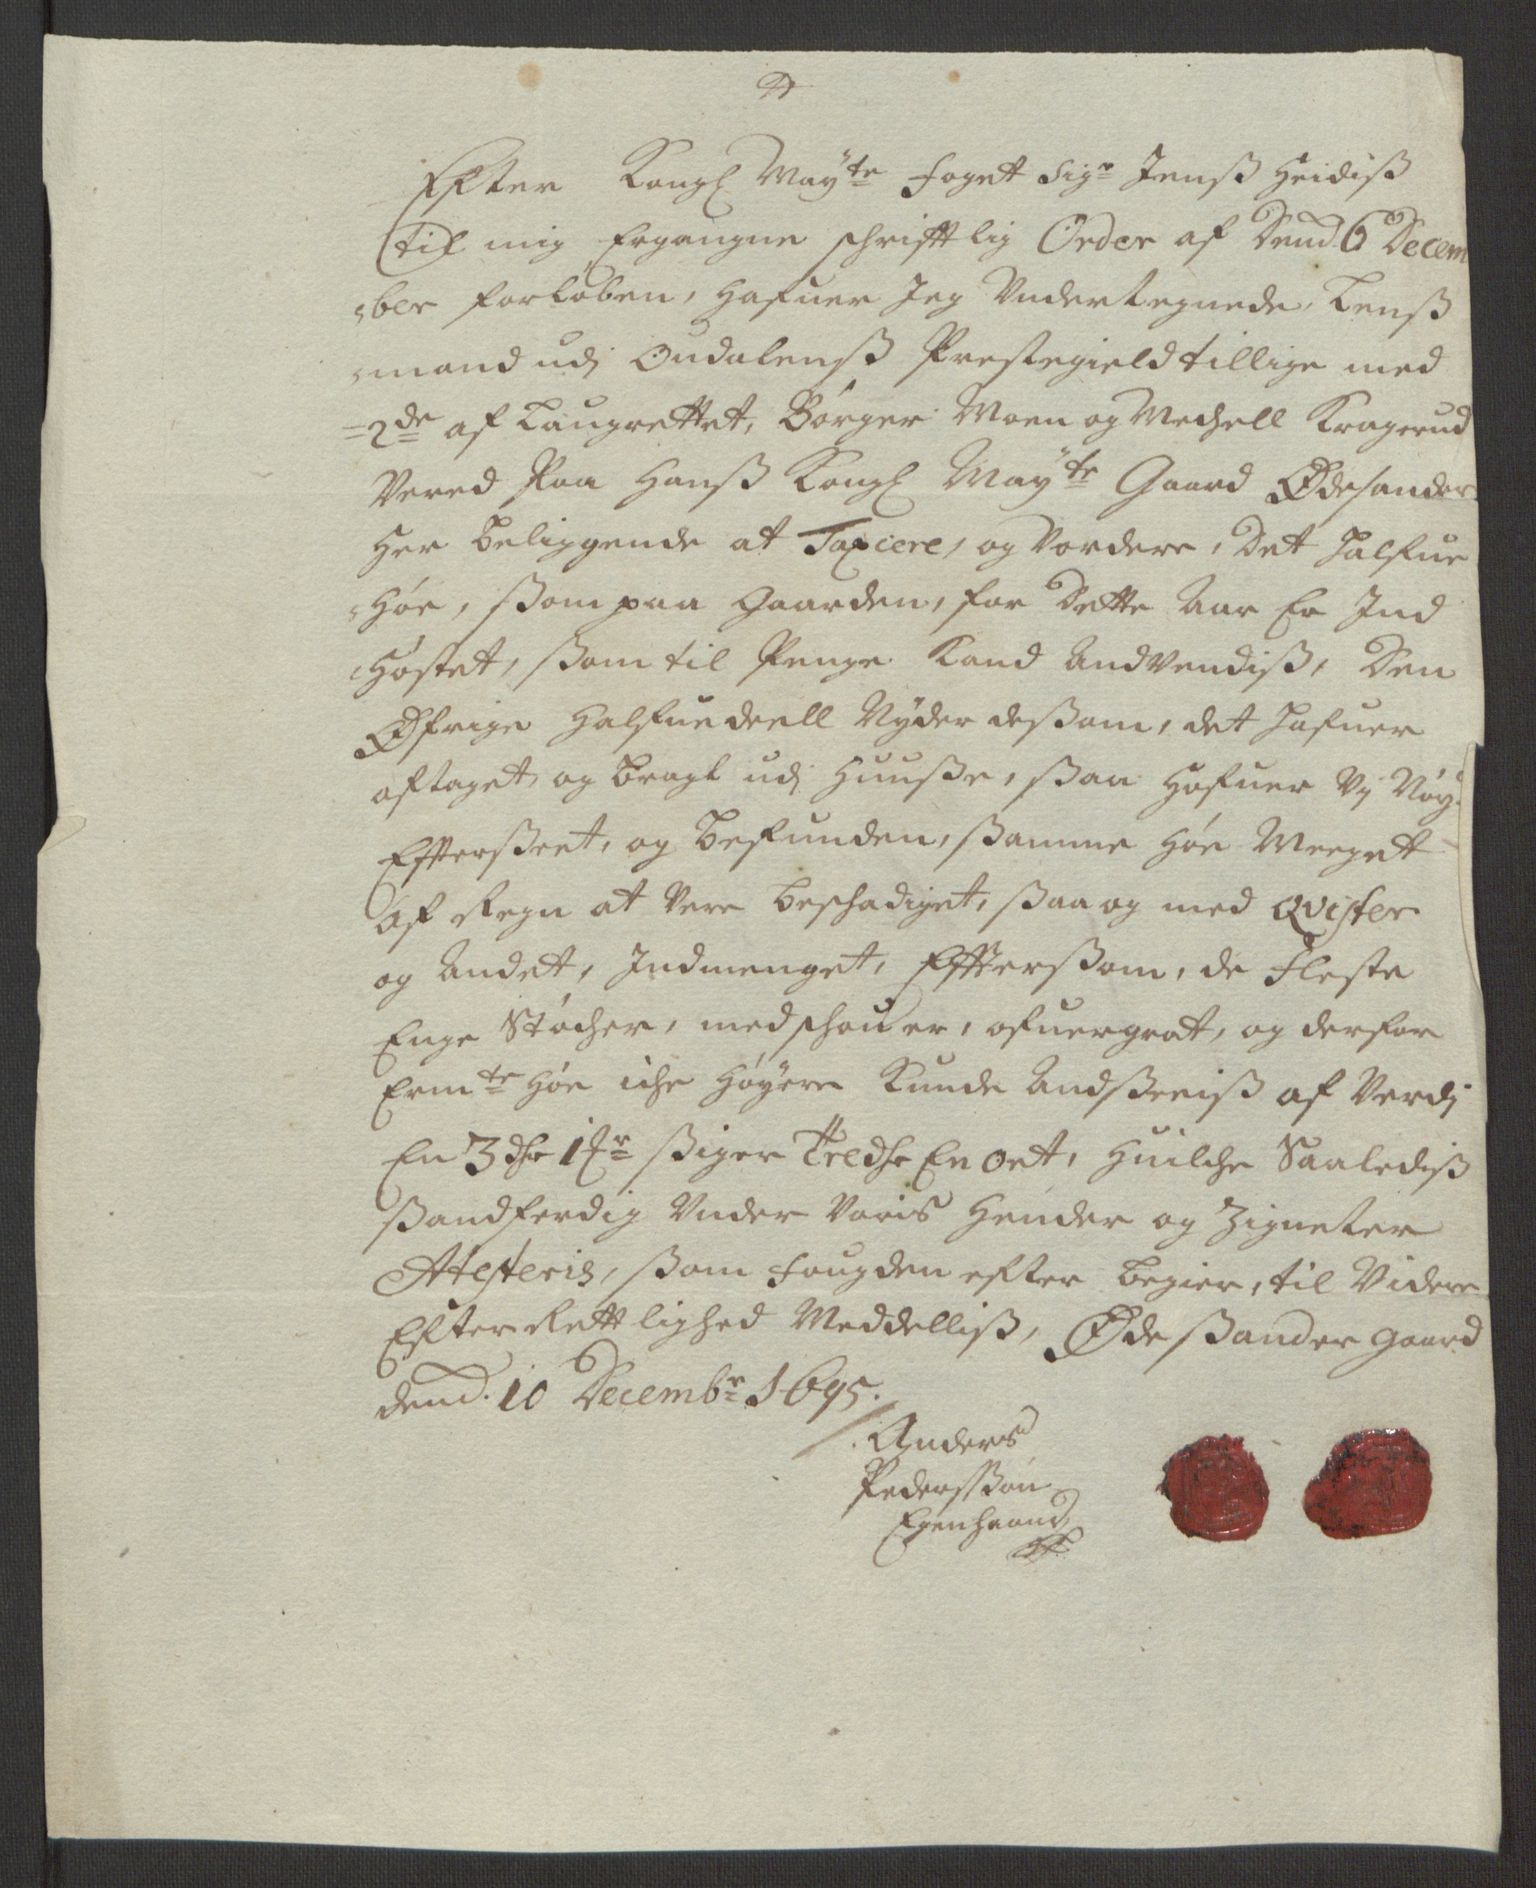 Efter Kongl May:te foget Sigr Jenß Heidiß
til mig Ergangne schrifftlig Order af Dend 6 Decem
ber forløben, Hafuer Jeg Undertegnede Lenß
mand udj Oudalenß Prestegield tillige med
2de af Laugrettet, Børger Moen og Mechell Kragerud
Vered Paa Hanß Kongl May:te Gaard Ødesander
Her beliggende at Taxiere, og Vordere, Det halfue
Høe, ßom paa Gaarden, for Dette Aar Er Ind
Høstet, ßom til Penge Kand Andvendiß, Den
Øfrige Halfuedeell Nyder deßom, det hafuer
aftaget og bragt udj Huuße, ßaa Hafuer Vj Nøy
Effterßeet, og befunden, ßamme Høe Meeget
af Regn at Vere beschadiget, ßaa og med Qvister
og Andet, Indmenget, Effterßom, de Fleste
Enge Støcher, med schou er, ofuergrot, og derfor
Erm:te Høe iche Høyere Kunde Andßeeiß af Verdj
En 3 dhr 1 Ør ßiger Tredhe En ort, Huilche Saalediß
ßandferdig Under Voris Hender og Zigneter
Atesteris, ßom Fougden efter begier, til Videre
Efter Rettlighed Meddelliß, Ødeßander gaard
dend. 10 Decembr 1695.
Anders
Pederßøn
Egenhaand